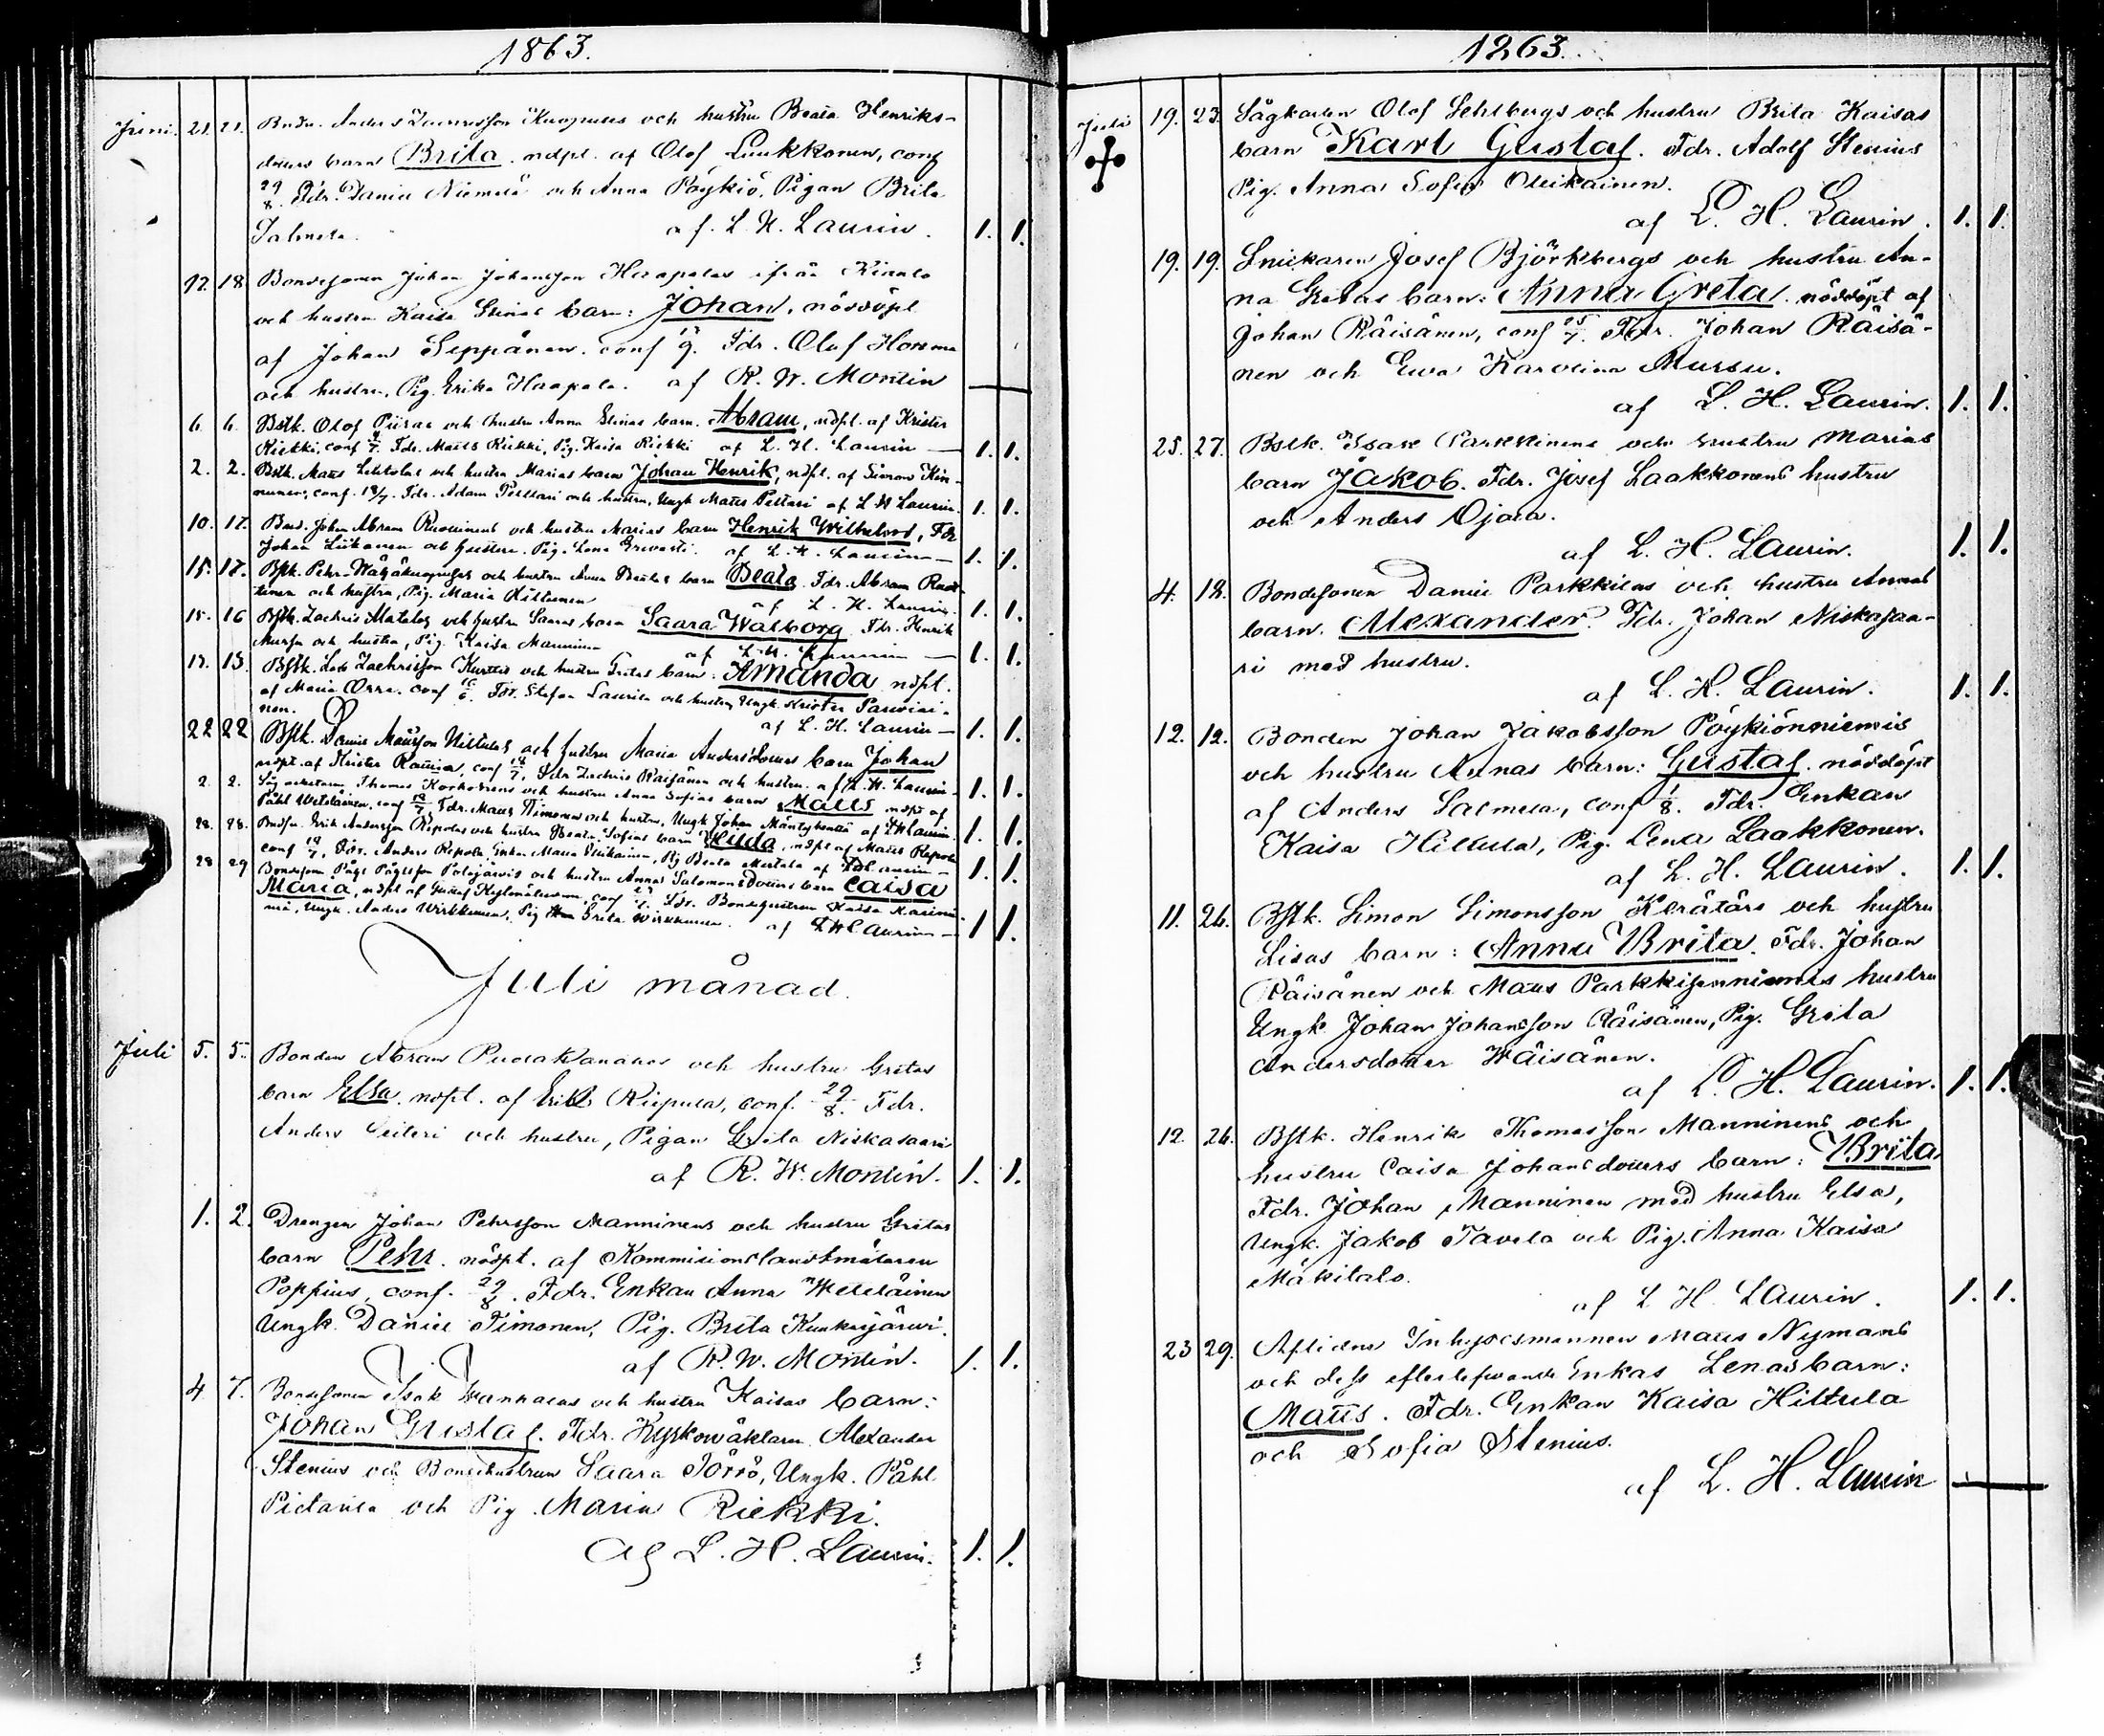 1863.
Juni. 21. 21. Bndn. Anders och hustru Beata Henriks-
dotters barn Brita. ndpt. af Olof Luukkonen, conf
29/8. Fdr. Daniel Niemelä och Anna Pöykiö, Pigan Brita
Salmela. af L. H. Laurin. 1. 1.
12. 18. Bondesonen Johan Johansson Haapalas ifrån
och hustru Kaisa Stinas barn: Johan, nöddöpt
af Johan Seppänen. conf Fdr. Olof
och hustru, Pig. Erika Haapala. af R. W. Montin
6. 6. Bstk. Olof Piiras och hustru Anna Stinas barn. Abram, ndpt. af Krister
Riekki, conf Fdr. Matts Riekki, Pig. Kaisa Riekki af L. H. Laurin 1. 1.
2. 2. Bstk. Matts och hustru Marias barn Johan Henrik, ndpt. af Simon Kin-
nunen, conf. 19/7. Fdr. Adam Peltari och hustru, Ungk Matts Peltari af L H Laurin. 1. 1.
10. 17. Johan Abram och hustru Marias barn Henrik Wilhelm, Fdr
Johan och hustru. Pig. Lena af L. H. Laurin 1. 1.
15. 17. Bstk. Pehr och hustru Anna barn Beata. Fdr. Abram
och hustru, Pig. Maria Hiltunen af L. H. Laurin. 1. 1.
15. 16 Bstk. Zachris Matalas och hustru Saaras barn Saara Walborg. Fdr. Henrik
Mursu och hustru, Pig. Kaisa Manninen af L. H. Laurin 1. 1.
13. 15. Bstk. Zachrisson Kurttis och hustru Gretas barn: Amanda ndpt.
af Maria Orra. conf Fdr. Stefan Laurila och hustru, Ungk. Krister
nen. af L. H. Laurin 1. 1.
22 22 Bstk. Daniel Mattsson och hustru Maria Andersdotters barn Johan
ndpt. af Krister conf Fdr Zachris Räisänen och hustru. af L. H. Laurin 1. 1.
2. 2. Thomas Korhonens och hustru Anna Sofias barn Matts ndpt af
Påhl Weteläinen, conf 19/7. Fdr. Matts Timonen och hustru, Ungk Johan Mäntykenttä af L H Laurin. 1. 1.
28. 28. Erik Andersson Riepolas och hustru Beata Sofias barn Hilda, ndpt af Matts Riepola
conf 19/7. Fdr. Anders Riepola, Enkan Maria Pig Beata af L H Laurin 1. 1.
28 29 Bondeson och hustru Annas Salomonsdotters barn Caisa
Maria, ndpt af Gustaf conf Fdr. Bondehustrun Kaisa
Ungk. Anders Wirkkunen, Pig Greta Wirkkunen. af L H Laurin 1 1.
Juli månad.
Juli 5. 5. Bonden Abram och hustru Gretas
barn Elsa. ndpt. af Erik Riepula, conf. 29/8. Fdr.
Anders och hustru, Pigan Greta Niskasaari
af R. W. Montin. 1. 1.
1. 2. Drengen Johan Pehrsson Manninens och hustru Gretas
barn Pehr. nödpt. af Kommisionslandtmätaren
Poppius, conf. 29/8. Fdr. Enkan Anna Weteläinen
Ungk. Daniel Timonen, Pig. Brita
af R. W. Montin. 1. 1.
4. 7. Bondesonen Isak och hustru Kaisas barn:
Johan Gustaf. Fdr. Kyrkowäktaren Alexander
Stenius och Bondehustrun Saara Törrö, Ungk. Påhl
och Pig. Maria Riekki.
af L. H. Laurin. 1. 1.
1863.
Juli 19. 23. Sågkarlen Olof Sehlbergs och hustru Brita Kaisas
barn Karl Gustaf. Fdr. Adolf Stenius
Pig. Anna Sofia Oleikainen.
af L. H. Laurin. 1. 1.
19. 19. Snickaren Josef Björkbergs och hustru An-
na Gretas barn: Anna Greta. nöddöpt af
Johan Räisänen, conf 25/7. Fdr. Johan Räisä-
nen och Ewa Karolina Mursu.
af L. H. Laurin. 1. 1.
25. 27. Bstk. Isak Parkkinens och hustru Marias
barn Jakob. Fdr. Josef Laakkonens hustru
och Anders Ojala.
af L. H. Laurin. 1. 1.
4. 12. Bondesonen Daniel Parkkilas och hustru Annas
barn. Alexander. Fdr. Johan Niskasaa-
ri med hustru.
af L. H. Laurin. 1. 1.
12. 12. Bonden Johan Jakobsson Pöykiönniemis
och hustru Annas barn: Gustaf. nöddöpt
af Anders Salmela, conf 1/8. Fdr. Enkan
Kaisa Hiltula, Pig. Lena Laakkonen.
af L. H. Laurin. 1. 1.
11. 26. Bstk. Simon Simonsson Kerätärs och hustru
Lisas barn: Anna Brita. Fdr. Johan
Räisänen och Matts Parkkisenniemis hustru
Ungk. Johan Johansson Räisänen, Pig. Greta
Andersdotter Wäisänen.
af L. H. Laurin. 1. 1.
12 26. Bstk. Henrik Thomasson Manninens och
hustru Caisa Johansdotters barn: Brita.
Fdr. Johan Manninen med hustru Elsa,
Ungk. Jakob Tavela och Pig. Anna Kaisa
Mäkitalo.
af L H Laurin. 1. 1.
23 29. Aflidne Inhysesmannen Matts Nymans
och dess efterlefwande Enkas Lenas barn:
Matts. Fdr. Enkan Kaisa Hiltula
och Sofia Stenius.
af L. H. Laurin